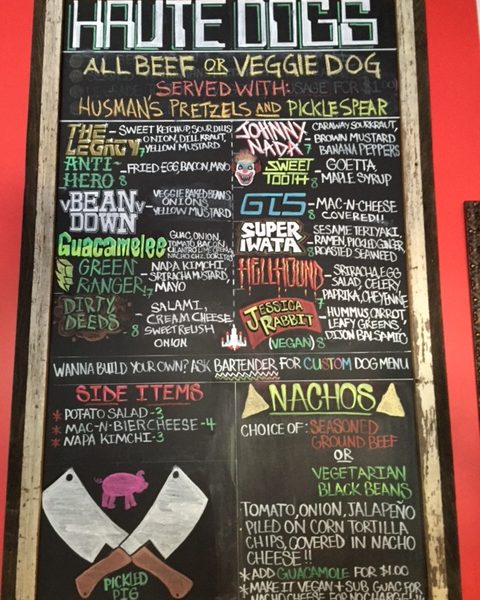 HAUTE DOGS
ALL BEEF OR VEGGIE DOG
SERVED WITH:
HUSMAN'S PRETZELS AND PICKLE SPEAR
THE LEGACY 7 - SWEET KETCHUP, SOUR DILLS
ONION, DILL KRAUT
YELLOW MUSTARD
ANTI-HERO 8 - FRIED EGG, BACON, MAYO
BEAN DOWN - VEGGIE BAKED BEANS
ONIONS
YELLOW MUSTARD
Guacamelee 8 GUAC, ONION
TOMATO, BACON,
NACHO CHZ. DORITOS
GREEN RANGER 7 NAPA KIMCHI
SRIRACHA MUSTARD
MAYO
DIRTY DEEDS 8 - SALAMI,
CREAM CHEESE
SWEET RELISH
ONION
JOHNNY NADA 7 - CARAWAY SOURKRAUT
BROWN MUSTARD
BANANA PEPPERS
SWEET TOOTH 8 - GOETTA
MAPLE SYRUP
GTS 8 - MAC-N-CHEESE
COVERED!!
SUPER IWATA 8 - SESAME TERIYAKI
RAMEN, PICKLED GINGER
ROASTED SEAWEED
HELLHOUND - SRIRACHA, EGG
SALAD, CELERY
PAPRIKA, CHEYENNE
JESSICA RABBIT (VEGAN) 8 - HUMMUS, CARROT
LEAFY GREENS
DIJON BALSAMIC
WANNA BUILD YOUR OWN? ASK BARTENDER FOR CUSTOM DOG MENU
SIDE ITEMS
* POTATO SALAD - 3
* MAC-N-BIER CHEESE - 4
* NAPA KIMCHI - 3
PICKLED
PIG
NACHOS
CHOICE OF: SEASONED
GROUND BEEF
OR
VEGETARIAN
BLACK BEANS
TOMATO, ONION, JALAPEÑO
PILED ON CORN TORTILLA
CHIPS, COVERED IN NACHO
CHEESE!!
* ADD GUACAMOLE FOR $1.00
* MAKE IT VEGAN & SUB GUAC FOR
NACHO CHEESE FOR NO CHARGE